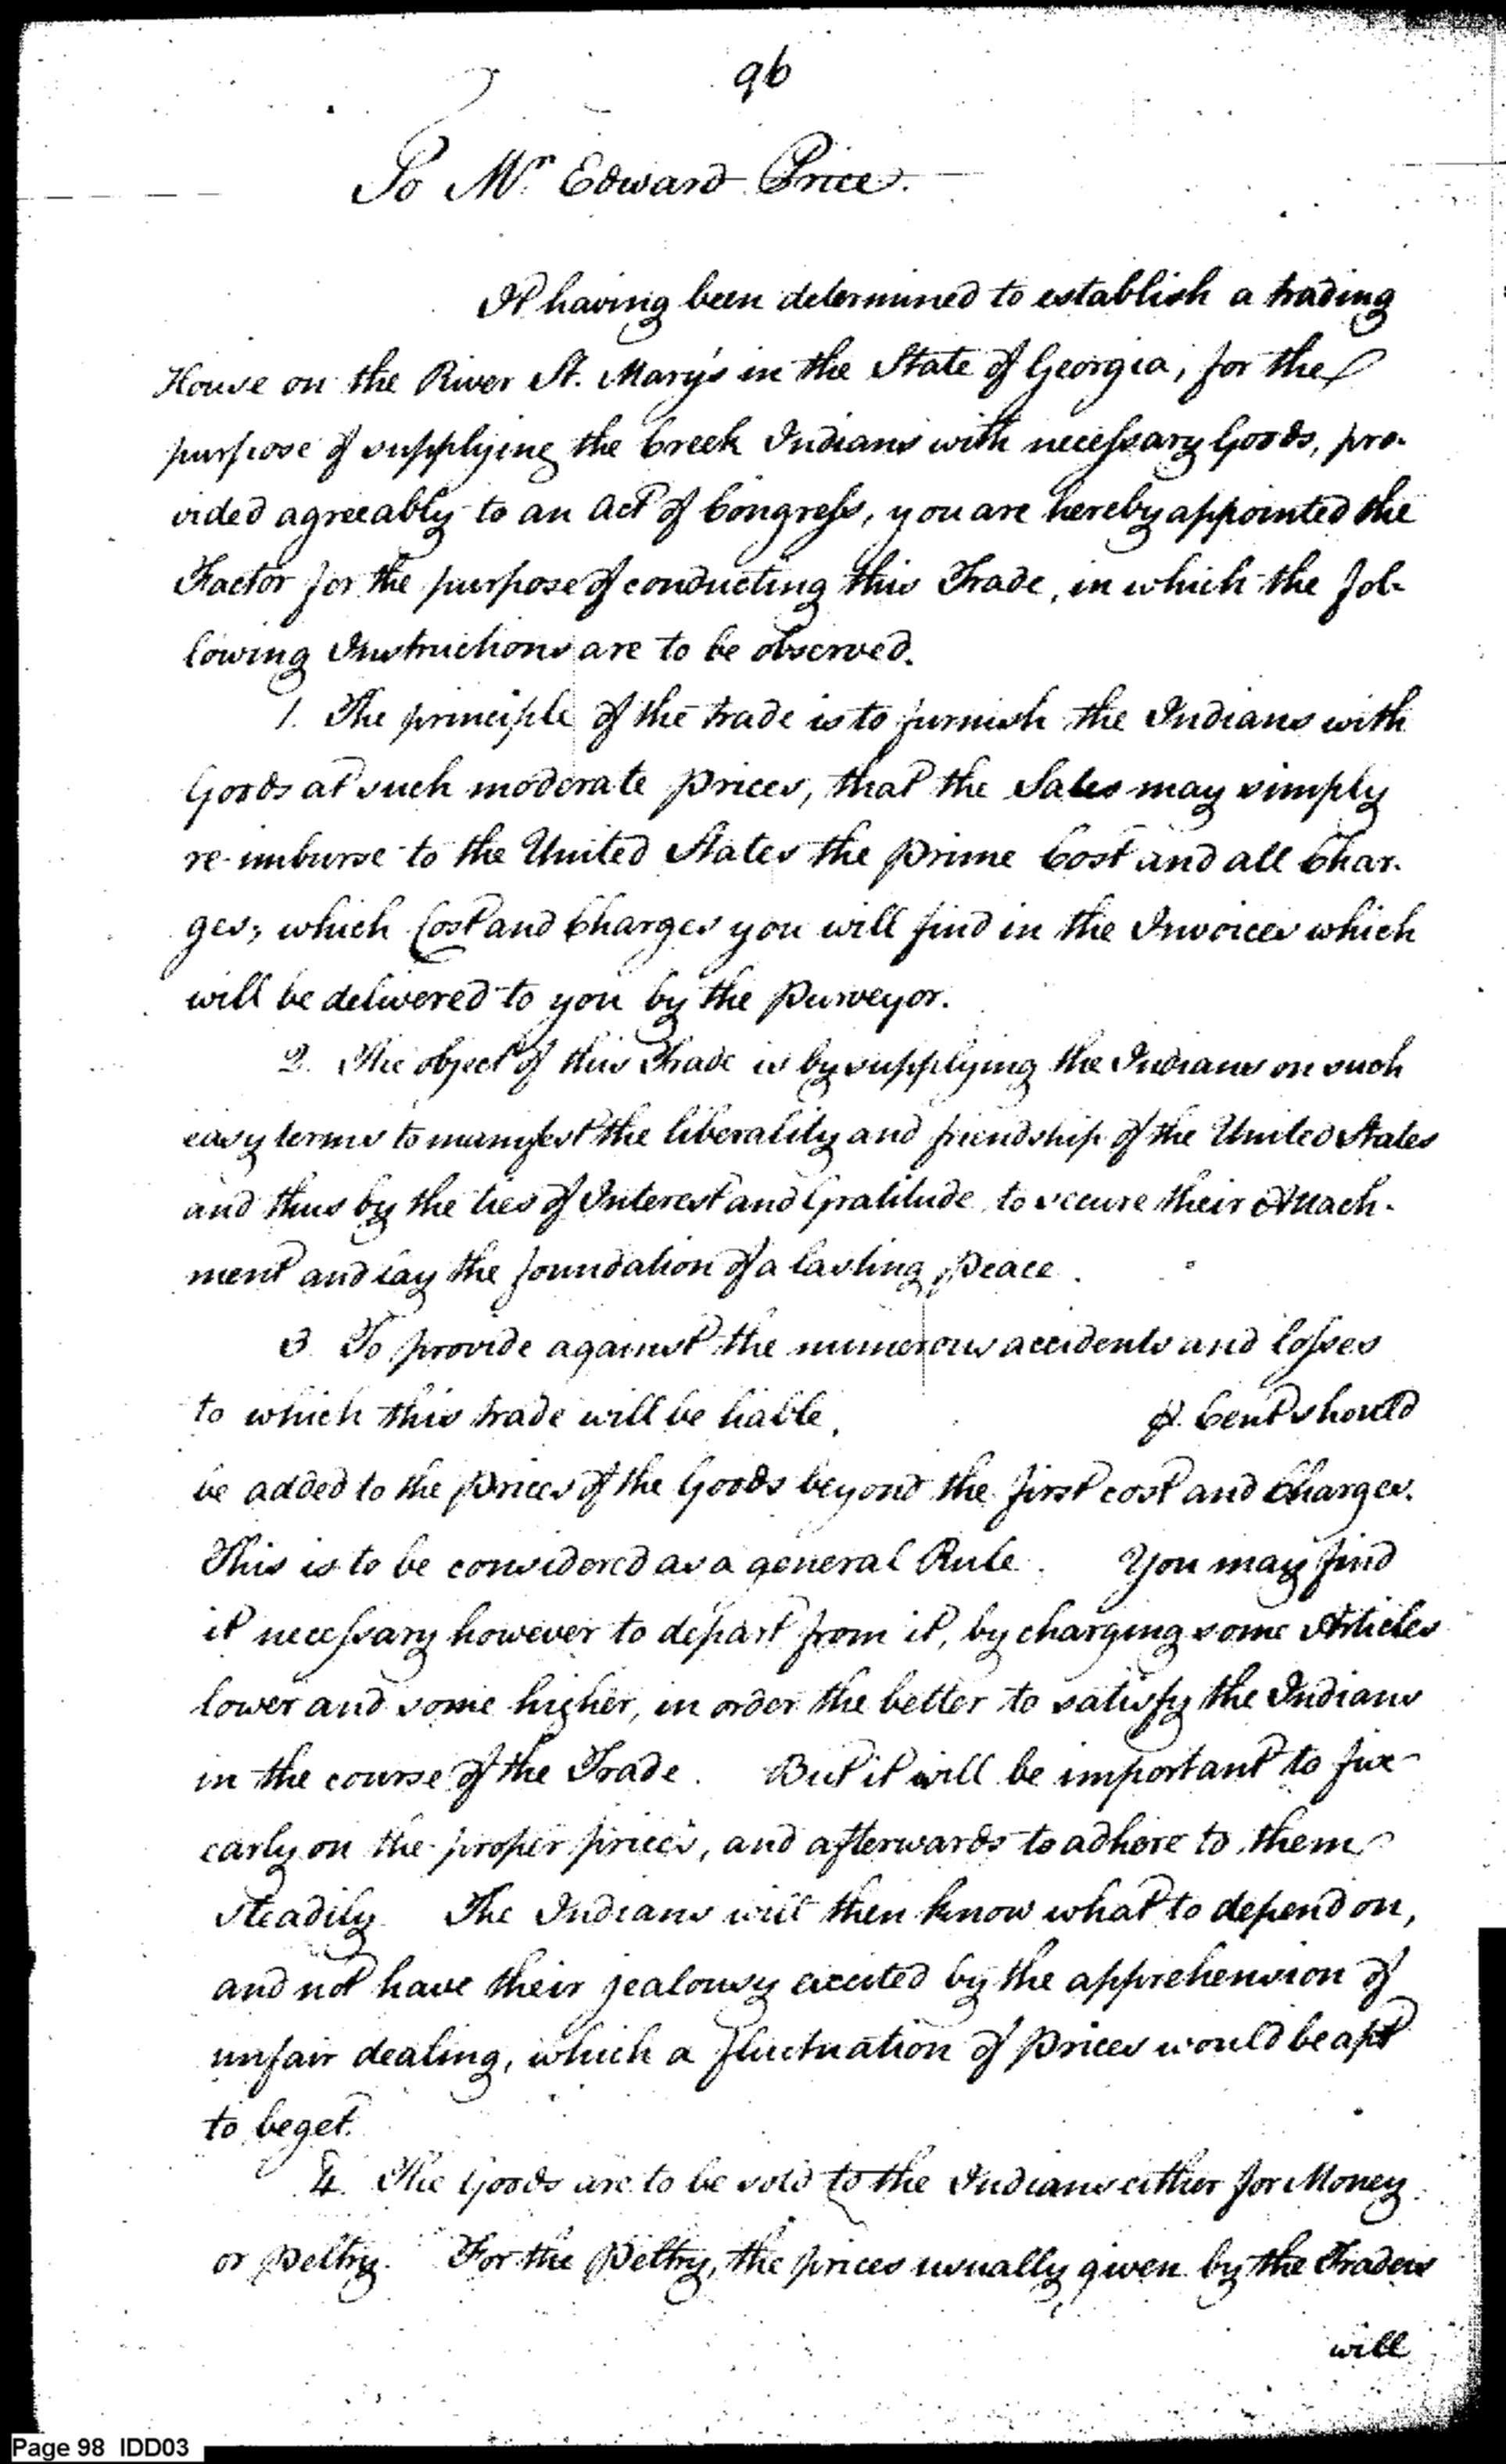 96
To Mr. Edward Price.
It having been determined to establish a trading
House on the River St. Mary's in the State of Georgia, for the
purpose of supplying the Creek Indians with necessary Goods, pro-
vided agreeably to an Act of Congress, you are hereby appointed the
Factor for the purpose of conducting this Trade, in which the fol-
lowing Instructions are to be observed.
1. The principle of the trade is to furnish the Indians with
Goods at such moderate prices, that the Sales may simply
re-imburse to the United States the prime Cost and all Char-
ges; which Cost and Charges you will find in the Invoices which
will be delivered to you by the Purveyor.
2. The object of this Trade is by supplying the Indians on such
easy terms to manifest the liberality and friendship of the United States
and thus by the ties of Interest and Gratitude to secure their Attach-
ment and lay the foundation of a lasting Peace.
3. To provide against the numerous accidents and losses
to which this trade will be liable, ⅌. Cent should
be added to the prices of the Goods beyond the first cost and Charges.
This is to be considered as a general Rule. You may find
it necessary however to depart from it, by charging some Articles
lower and some higher, in order the better to satisfy the Indians
in the course of the Trade. But it will be important to fix
early on the proper prices, and afterwards to adhere to them
steadily. The Indians will then know what to depend on,
and not have their jealousy excited by the apprehension of
unfair dealing, which a fluctuation of prices would be apt
to beget.
4. The Goods are to be sold to the Indians either for Money
or Peltry. For the Peltry, the prices usually given by the Traders
will
Page 98 IDD03